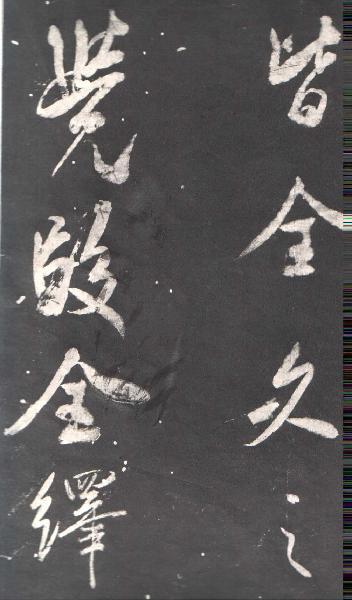 皆全久之
覺段全繹